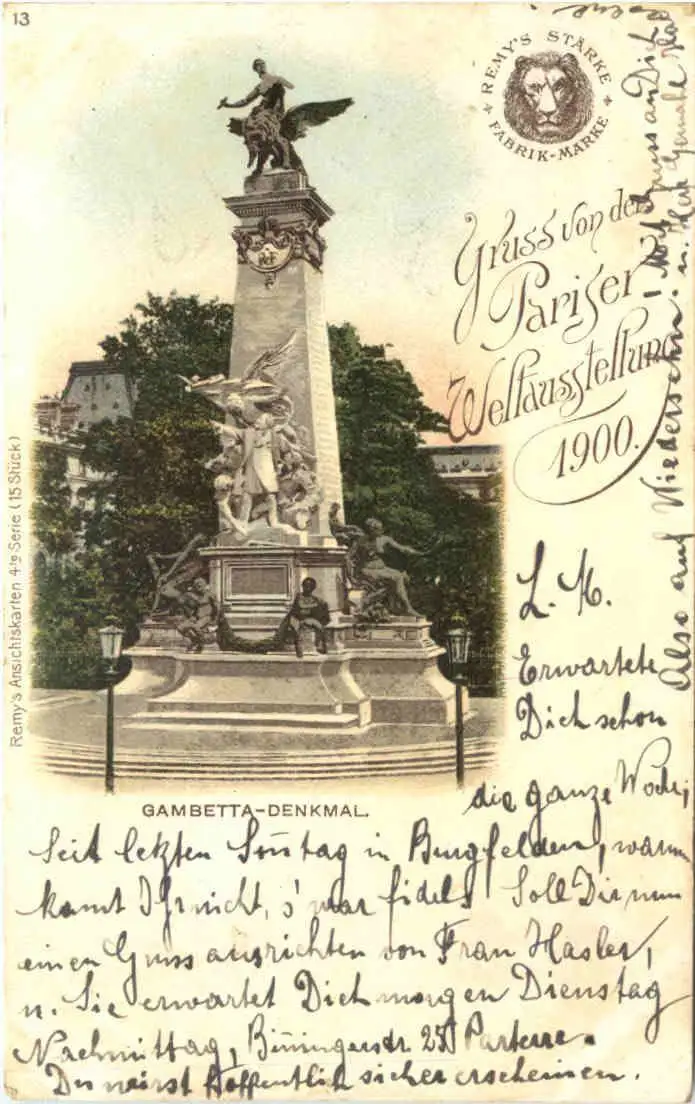 13
REMY'S STÄRKE
FABRIK-MARKE
Gruss von der
Pariser
Weltausstellung
1900.
Remy's Ansichtskarten 4te Serie (15 Stück)
GAMBETTA-DENKMAL.
L. M.
Erwartete
Dich schon
die ganze Woche,
Seit letzten Sonntag in Burgfelden, warum
kamt Ihr nicht, s' war fidel! Soll Dir nun
einen Gruss ausrichten von Frau Hasler,
u. Sie erwartet Dich morgen Dienstag
Nachmittag, Binningerstr 25 Parterre.
Du wirst hoffentlich sicher erscheinen.
Also auf Wiedersehn! Mit Gruss an Dich
u. Herr Gemahl